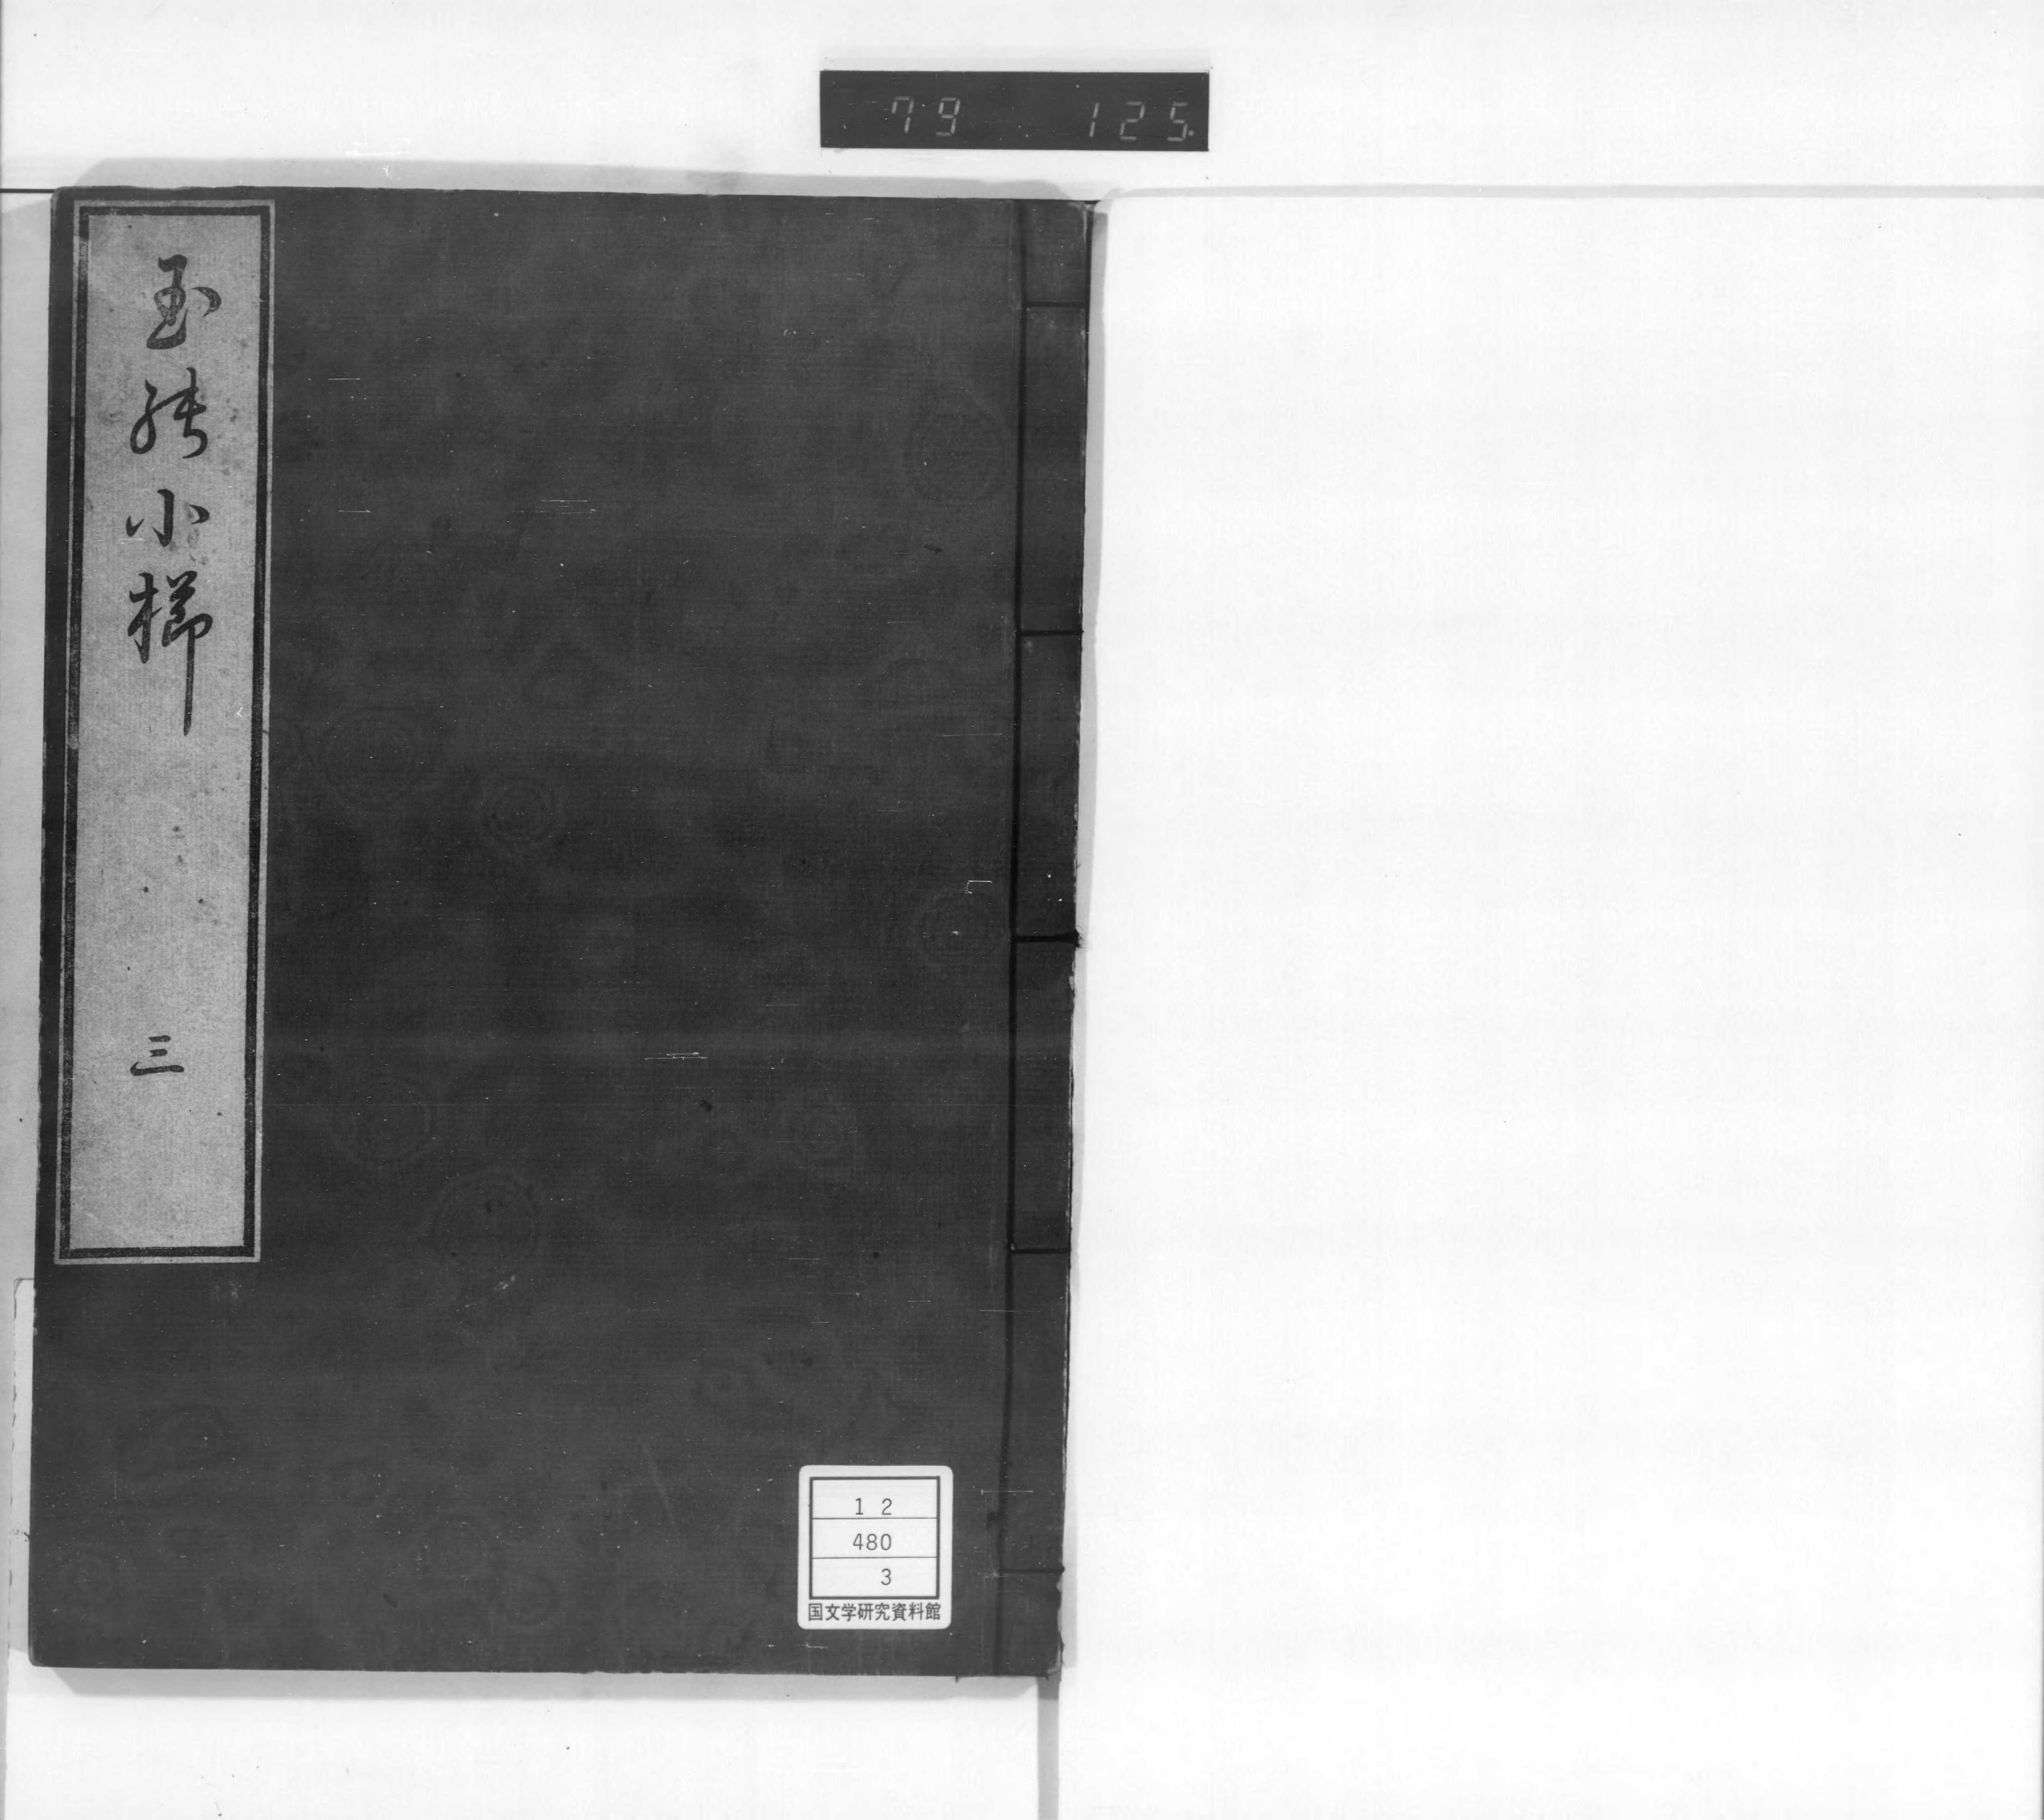 79 125
玉能小櫛 三
12
480
3
国文学研究資料館